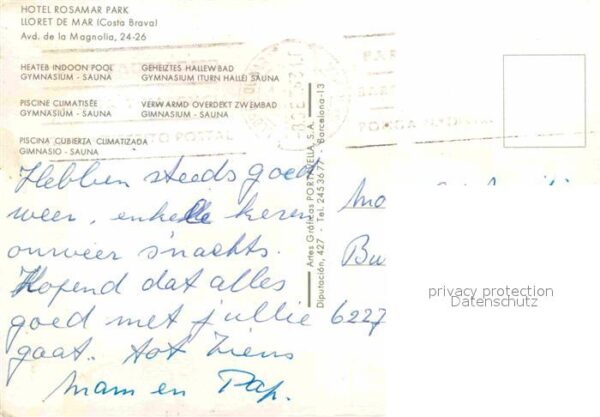 HOTEL ROSAMAR PARK
LLORET DE MAR (Costa Brava)
Avd. de la Magnolia, 24-26
HEATEB INDOON POOL
GYMNASIUM - SAUNA
GEHEIZTES HALLEWBAD
GYMNASIUM (TURN HALLE) SAUNA
PISCINE CLIMATISÉE
GYMNASIUM - SAUNA
VERWARMD OVERDEKT ZWEMBAD
GIMNASIUM - SAUNA
PISCINA CUBIERTA CLIMATIZADA
GIMNASIO - SAUNA
Hebben steeds goed
weer, enkele keren
onweer s'nachts.
Hopend dat alles
goed met jullie
gaat. tot ziens
Mam en Pap.
Artes Gráficas PORTAVELLA, S.A.
Diputación, 427 - Tel. 245 36 77 - Barcelona-13
PONGA
POSTAL
Mo
Bu
6227
privacy protection
Datenschutz